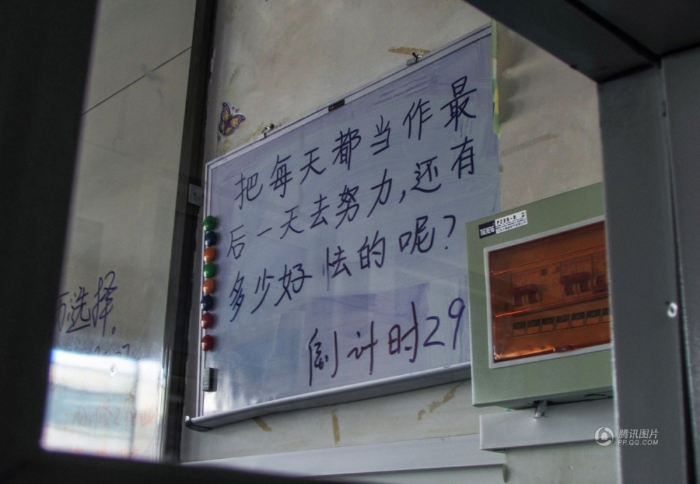 把每天都当作最
后一天去努力,还有
多少好怯的呢?
倒计时29
选择.
腾讯图片
PP.QQ.COM